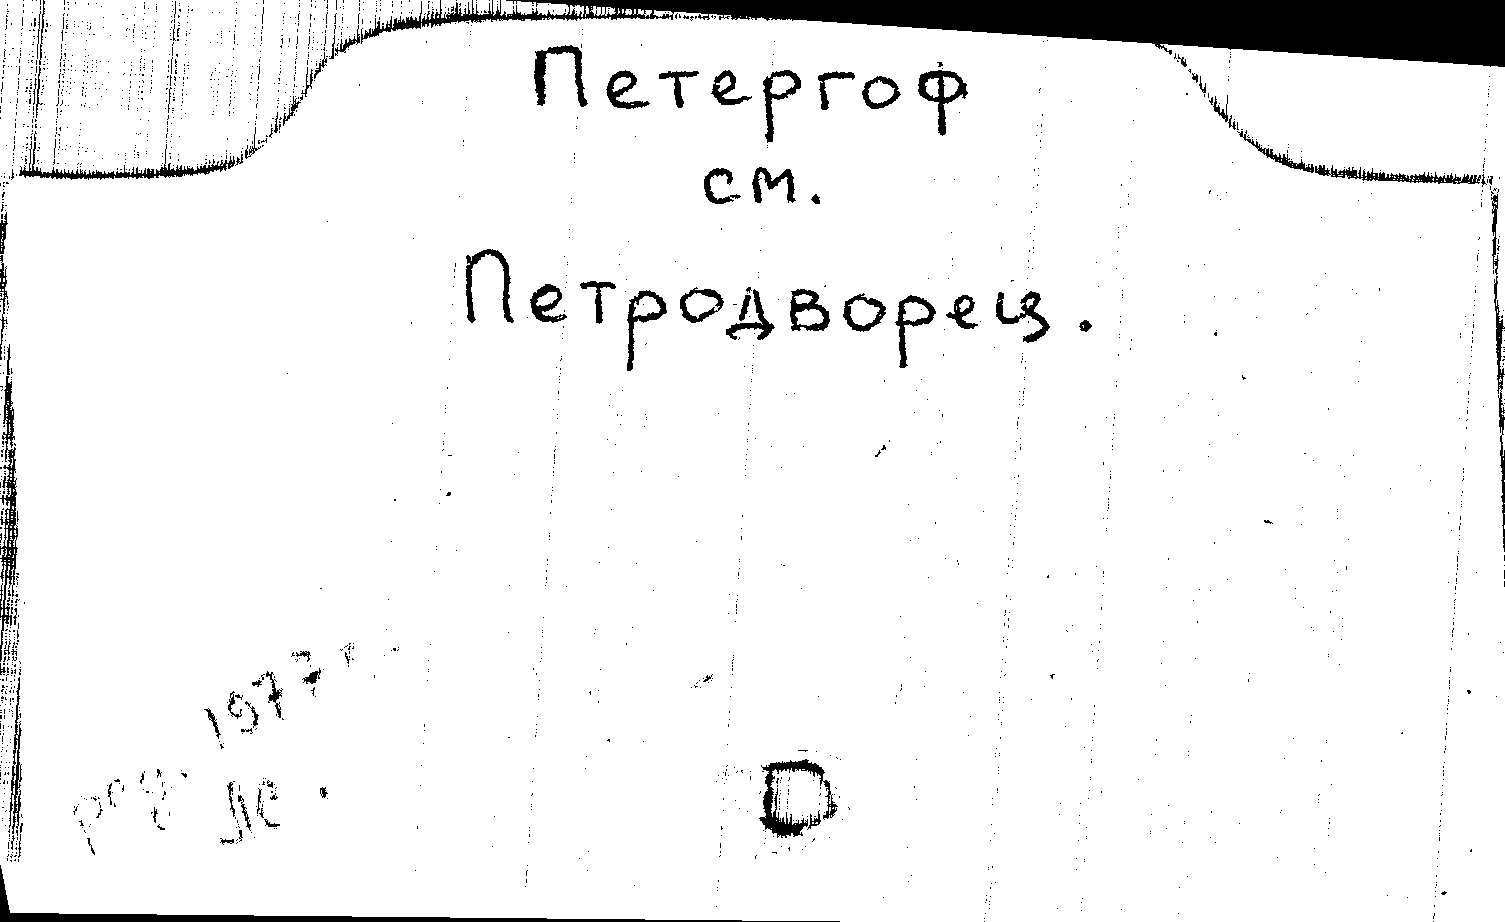 Петергоф
см.
Петродворец.
1977г.
ред.